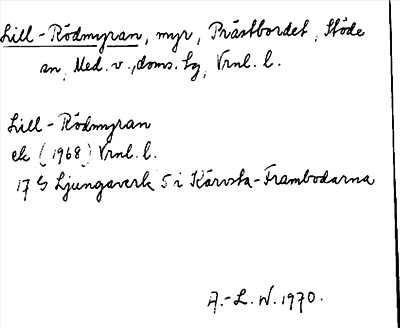 Lill-Rödmyran, myr, Prästbordet, Stöde
sn, Med. v., doms. tg, Vrnl. l.
Lill-Rödmyran
ek (1968) Vrnl. l.
17 G Ljungaverk 5 i Kärvsta-Frambodarna
A.-L. W. 1970.